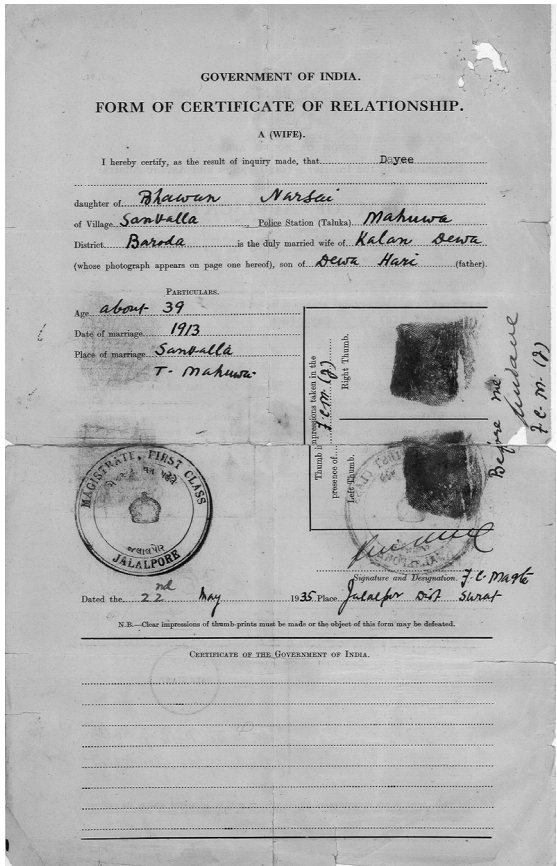 GOVERNMENT OF INDIA.
FORM OF CERTIFICATE OF RELATIONSHIP.
A (WIFE).
I hereby certify, as the result of inquiry made, that Dayee
daughter of Bhawan Narsai
of Village Sanvalla Police Station (Taluka) Mahuwa
District Baroda is the duly married wife of Kalan Dewa
(whose photograph appears on page one hereof), son of Dewa Hari (father).
PARTICULARS.
Age about 39
Date of marriage 1913
Place of marriage Sanvalla
T. Mahuwa
Thumb impressions taken in the
presence of F.C.M. (J)
Right Thumb.
Left Thumb.
Before me
F.C.M. (J)
MAGISTRATE, FIRST CLASS
JALALPORE
Signature and Designation. F.C. Magte
Dated the 22nd May 1935 Place Jalalpor Dist Surat
N.B.—Clear impressions of thumb-prints must be made or the object of this form may be defeated.
CERTIFICATE OF THE GOVERNMENT OF INDIA.